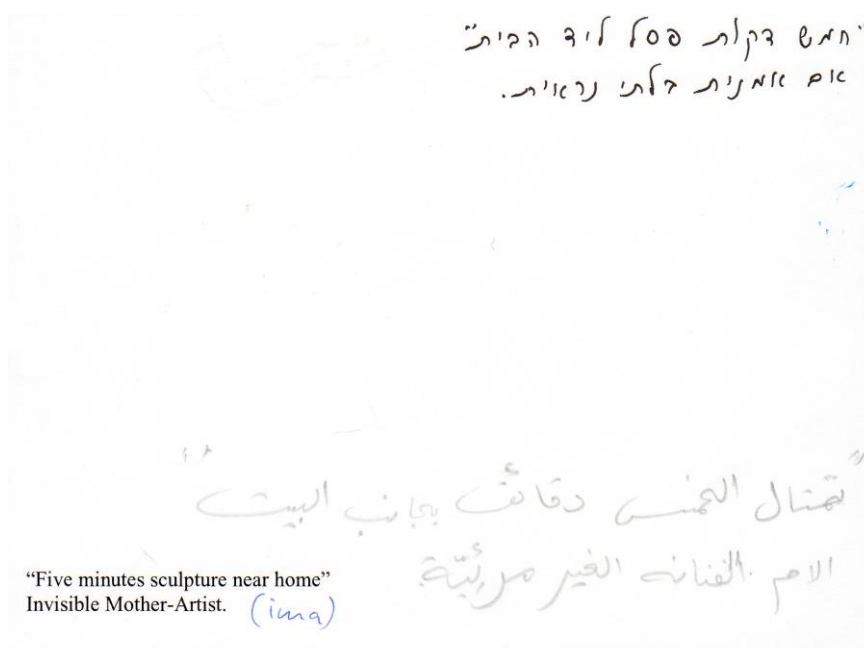 "חמש דקות פסל ליד הבית"
אם אמנית בלתי נראית.
"تمثال الخمس دقائق بجانب البيت"
الام الفنانه الغير مرئيّة
“Five minutes sculpture near home”
Invisible Mother-Artist. (ima)